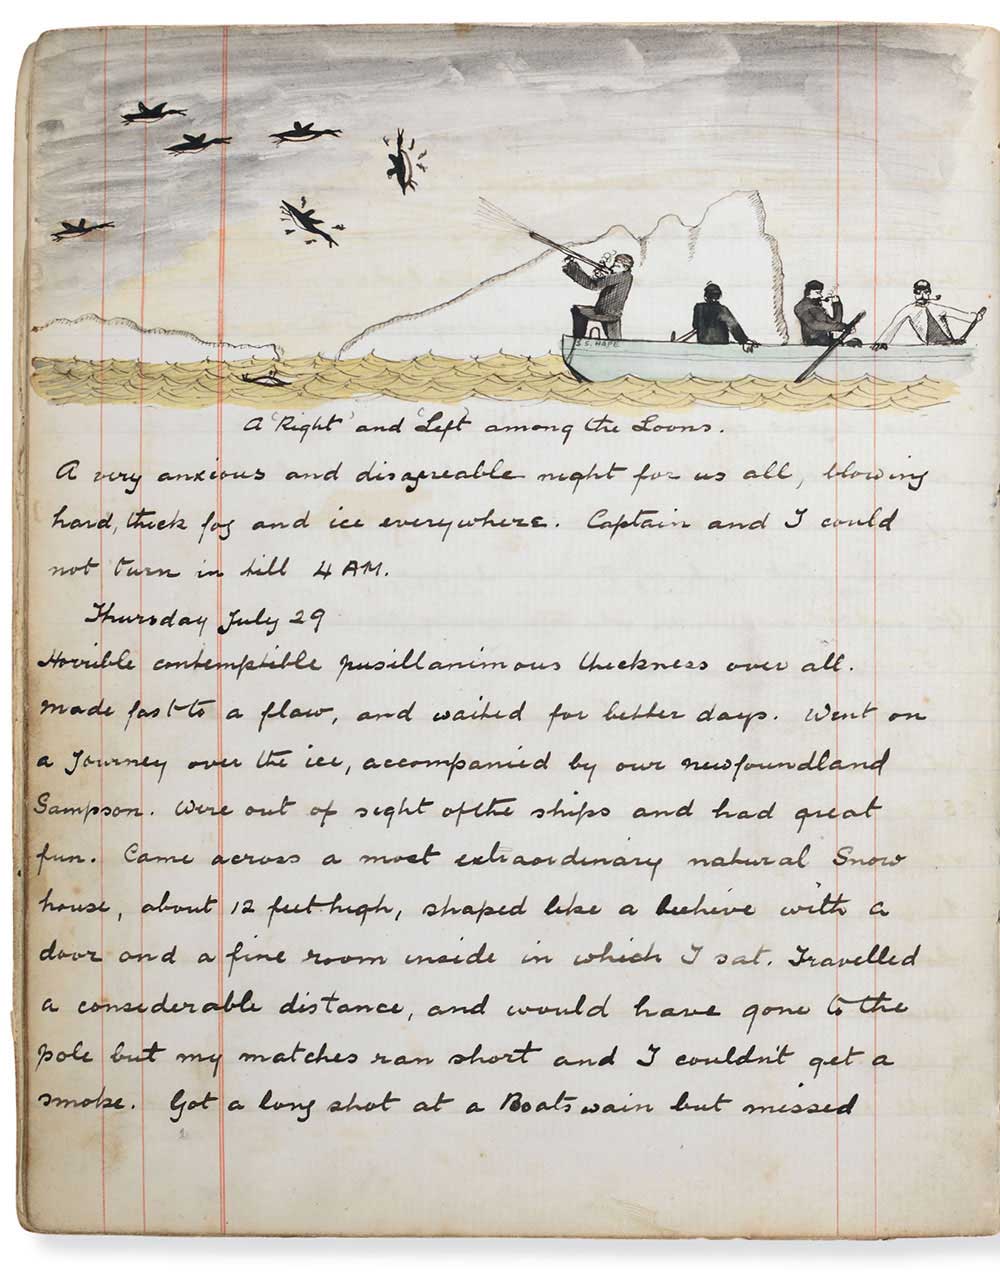 S.S. HOPE
A 'Right' and 'Left' among the Loons.
A very anxious and disagreable night for us all, blowing
hard, thick fog and ice everywhere. Captain and I could
not turn in till 4 AM.
Thursday July 29
Horrible contemptible pusillanimous thickness over all.
Made fast to a flaw, and waited for better days. Went on
a Journey over the ice, accompanied by our newfoundland
Sampson. Were out of sight of the ships and had great
fun. Came across a most extraordinary natural Snow
house, about 12 feet high, shaped like a beehive with a
door and a fine room inside in which I sat. Travelled
a considerable distance, and would have gone to the
pole but my matches ran short and I couldn't get a
smoke. Got a long shot at a Boatswain but missed